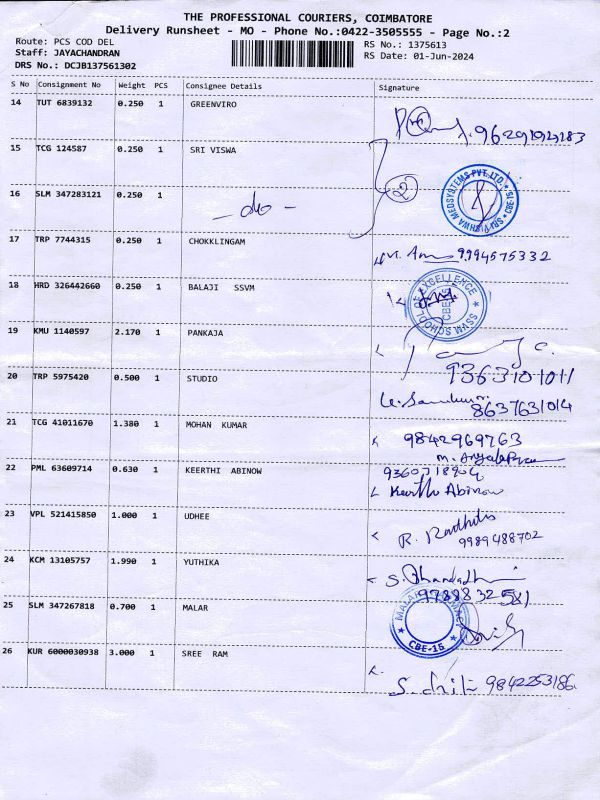 THE PROFESSIONAL COURIERS, COIMBATORE
Delivery Runsheet - MO - Phone No.:0422-3505555 - Page No.:2
Route: PCS COD DEL
Staff: JAYACHANDRAN
DRS No.: DCJB137561302
RS No.: 1375613
RS Date: 01-Jun-2024
S No Consignment No Weight PCS Consignee Details Signature
14 TUT 6839132 0.250 1 GREENVIRO
15 TCG 124587 0.250 1 SRI VISWA
16 SLM 347283121 0.250 1 - do - 2
SRI VISHWA MEDSYSTEMS PVT. LTD. CBE-15
17 TRP 7744315 0.250 1 CHOKKLINGAM 9994575332
18 HRD 326442660 0.250 1 BALAJI SSVM
SSVM SCHOOL OF EXCELLENCE CBE-15
19 KMU 1140597 2.170 1 PANKAJA
9363101011
20 TRP 5975420 0.500 1 STUDIO
8637631014
21 TCG 41011670 1.380 1 MOHAN KUMAR 9842969763
22 PML 63609714 0.630 1 KEERTHI ABINOW
Keerthi Abinow
23 VPL 521415850 1.000 1 UDHEE
9989488702
24 KCM 13105757 1.990 1 YUTHIKA
25 SLM 347267818 0.700 1 MALAR
CBE-15
26 KUR 6000030938 3.000 1 SREE RAM
9842253186